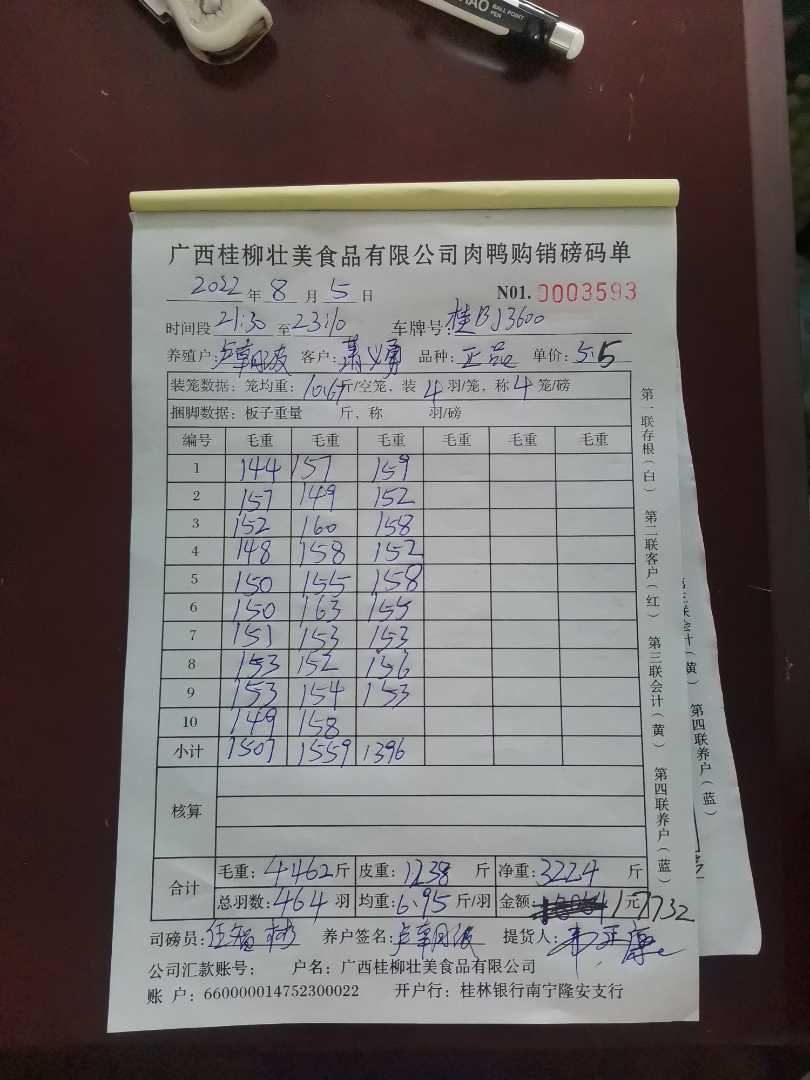 BALL POINT PEN
广西桂柳壮美食品有限公司肉鸭购销磅码单
2022年8月5日 N01.0003593
时间段21:30至23:10 车牌号:桂BJ3600
养殖户: 客户:萧义勇 品种:正品 单价:5.5
装笼数据:笼均重:10.67斤/空笼,装4羽/笼,称4笼/磅
捆脚数据:板子重量 斤,称 羽/磅
编号 毛重 毛重 毛重 毛重 毛重 毛重
1 144 157 159
2 157 149 152
3 152 160 158
4 148 158 152
5 150 155 158
6 150 163 155
7 151 153 153
8 153 152 156
9 153 154 153
10 149 158
小计 1507 1559 1396
核算
合计 毛重:4462斤 皮重:1238斤 净重:3224斤
总羽数:464羽 均重:6.95斤/羽 金额: 元17732
司磅员: 养户签名: 提货人:
公司汇款账号: 户名:广西桂柳壮美食品有限公司
账 户:660000014752300022 开户行:桂林银行南宁隆安支行
第一联存根(白) 第二联客户(红) 第三联会计(黄) 第四联养户(蓝)
第三联会计(黄) 第四联养户(蓝)